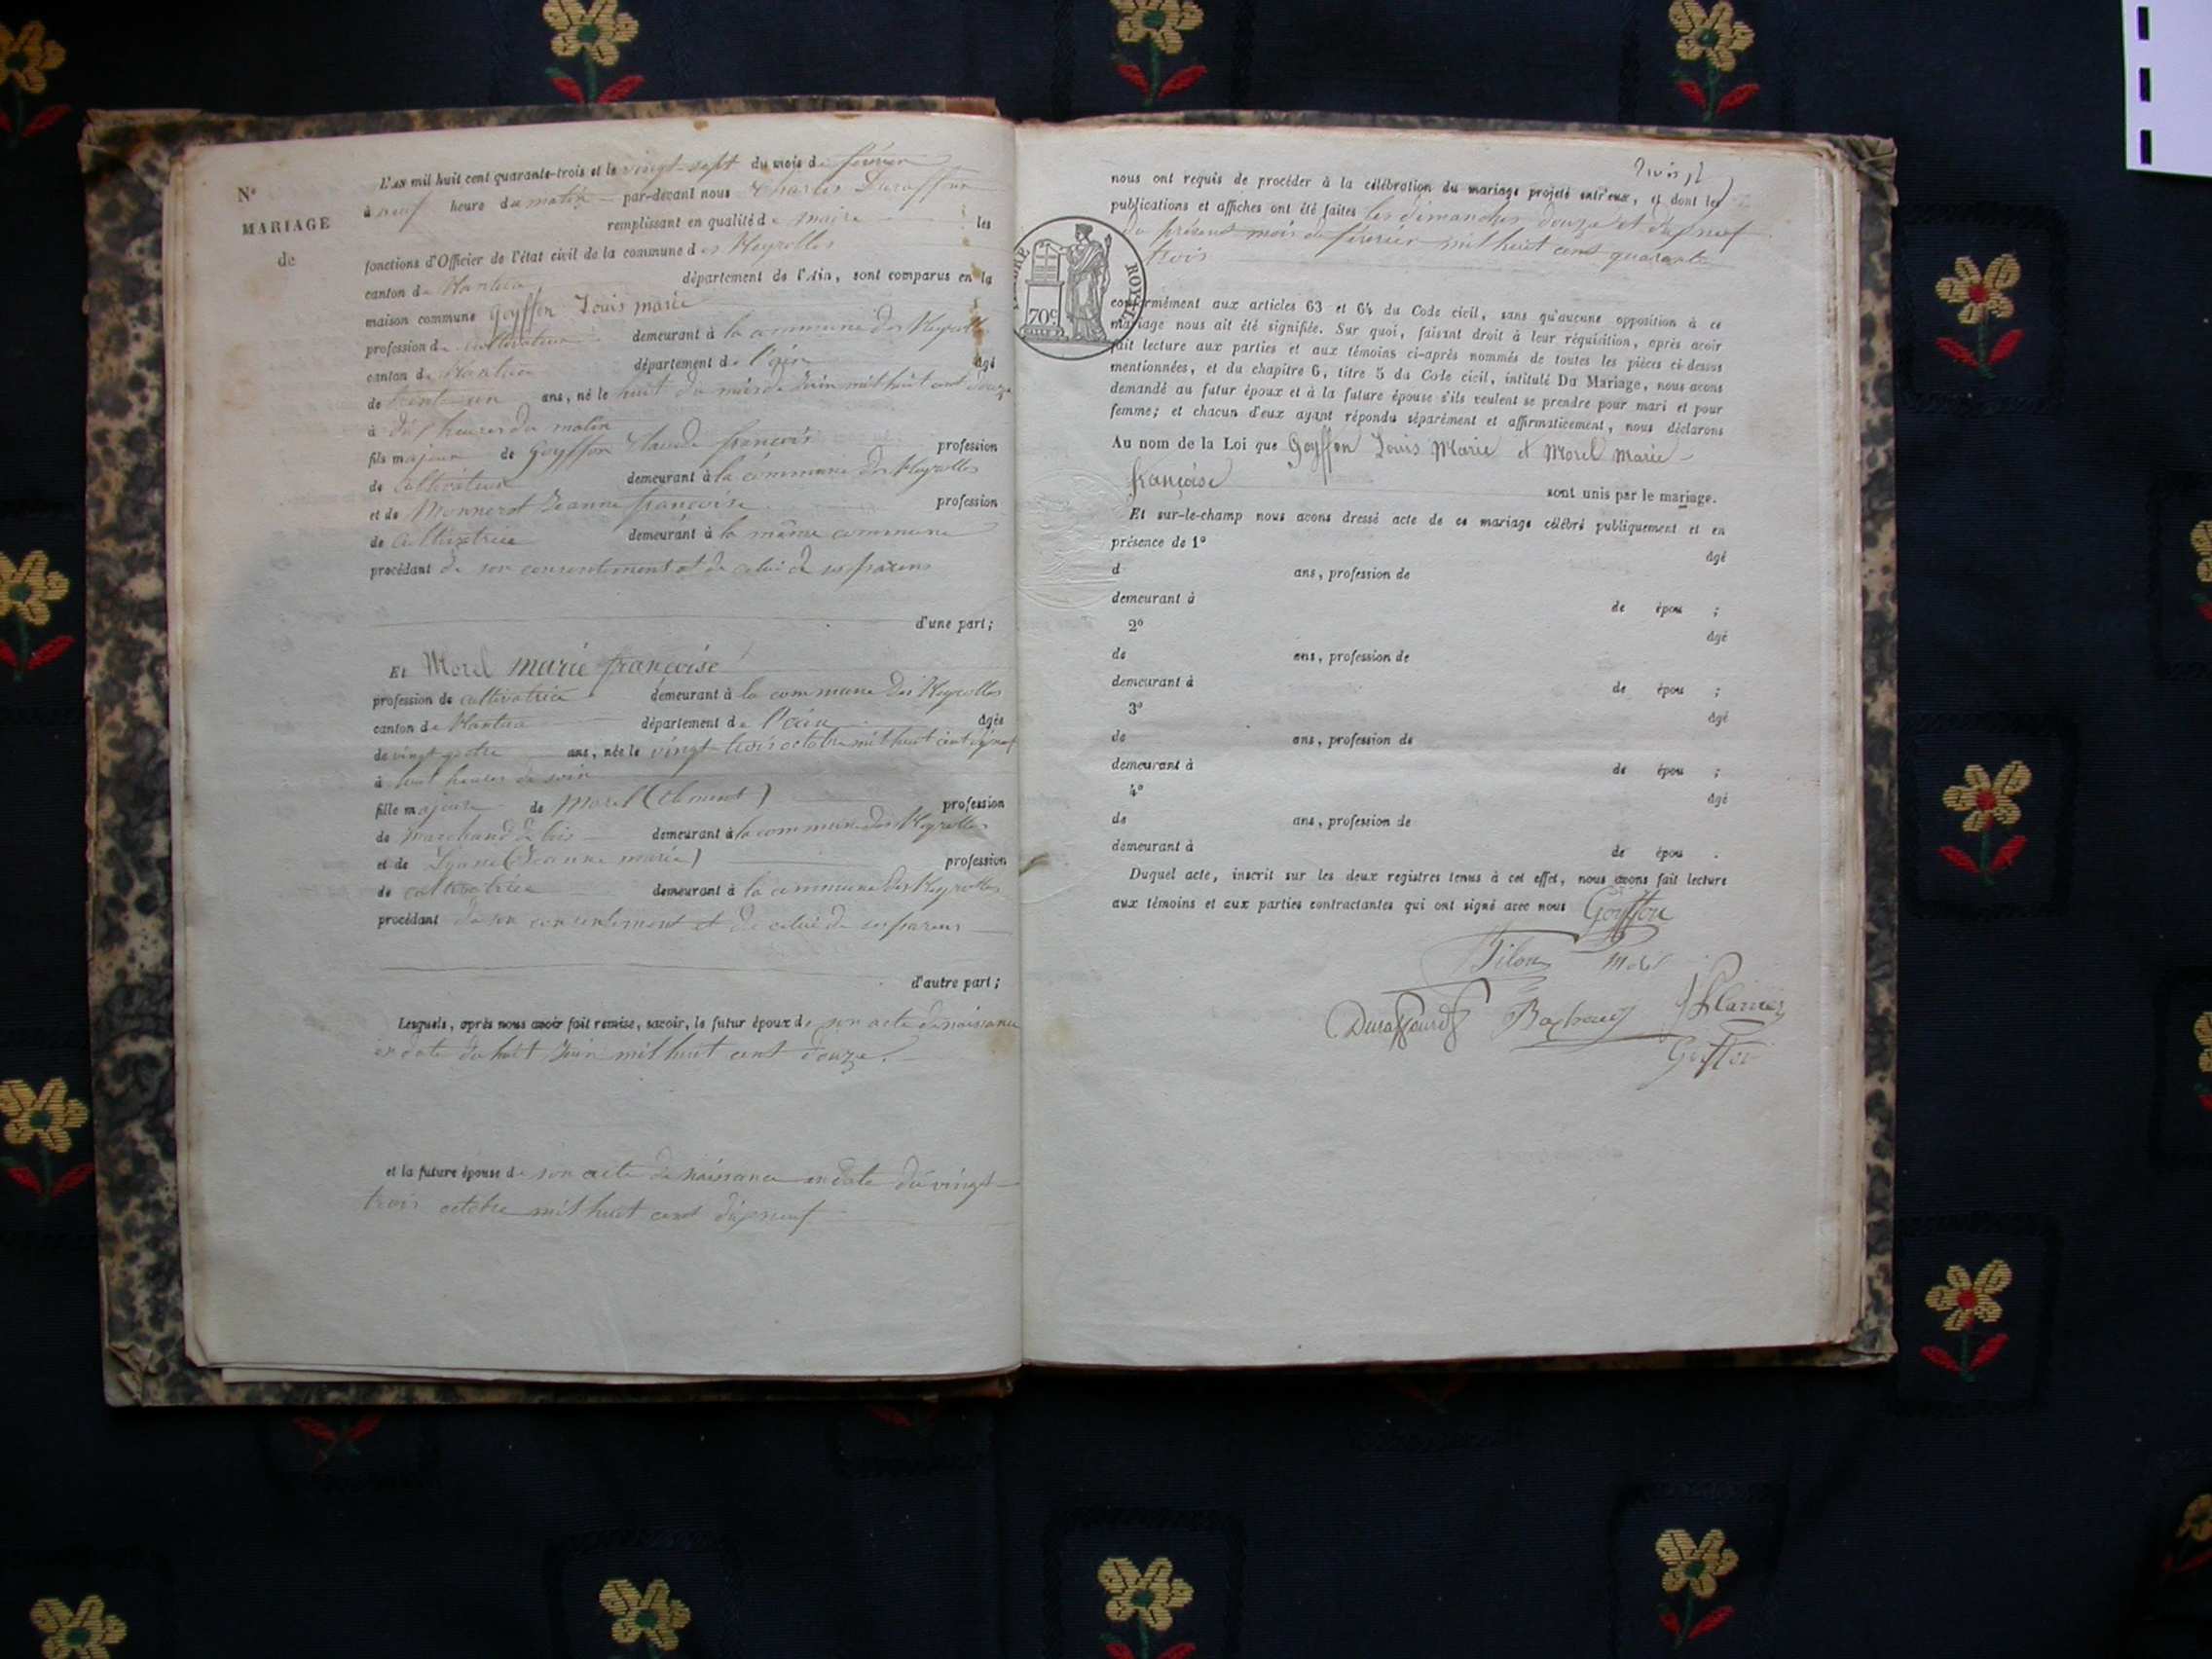 N°
MARIAGE
de
L'an mil huit cent quarante-trois et le vingt-sept du mois de février
à neuf heure du matin par-devant nous Charles
remplissant en qualité de maire les
fonctions d'Officier de l'état civil de la commune des Neyrolles
canton de Nantua département de l'Ain, sont comparus en la
maison commune Goyffon Louis marie
profession de cultivateur demeurant à la commune des Neyrolles
canton de Nantua département de l'ain âgé
de trente un ans, né le huit du mois de Juin mil huit cent douze
à dix heures du matin
fils majeur de Goyffon Claude françois profession
de cultivateur demeurant à la commune des Neyrolles
et de Monneret Jeanne françoise profession
de cultivatrice demeurant à la même commune
procédant de son consentement et de celui de ses parens
d'une part;
Et Morel marie françoise
profession de cultivatrice demeurant à la commune des Neyrolles
canton de Nantua département de l'ain âgée
de vingt quatre ans, née le vingt trois octobre mil huit cent dix neuf
à huit heures du soir
fille majeure de Morel (Clément) profession
de marchand de bois demeurant à la commune des Neyrolles
et de (Jeanne marie) profession
de cultivatrice demeurant à la commune des Neyrolles
procédant de son consentement et de celui de ses parens
d'autre part;
Lesquels, après nous avoir fait remise, savoir, le futur époux de son acte de naissance
en date du huit Juin mil huit cent douze.
et la future épouse de son acte de naissance en date du vingt
trois octobre mil huit cent dix neuf
nous ont requis de procéder à la célébration du mariage projeté entr'eux, et dont les
publications et affiches ont été faites les dimanches douze et dix neuf
du présent mois de février mil huit cent quarante
trois
TIMBRE ROYAL
70c
conformément aux articles 63 et 64 du Code civil, sans qu'aucune opposition à ce
mariage nous ait été signifiée. Sur quoi, faisant droit à leur réquisition, après avoir
fait lecture aux parties et aux témoins ci-après nommés de toutes les pièces ci-dessus
mentionnées, et du chapitre 6, titre 5 du Code civil, intitulé Du Mariage, nous avons
demandé au futur époux et à la future épouse s'ils veulent se prendre pour mari et pour
femme; et chacun d'eux ayant répondu séparément et affirmativement, nous déclarons
Au nom de la Loi que Goyffon Louis Marie et Morel Marie
françoise sont unis par le mariage.
Et sur-le-champ nous avons dressé acte de ce mariage célébré publiquement et en
présence de 1° âgé
d ans, profession de
demeurant à de épou ;
2° âgé
de ans, profession de
demeurant à de épou ;
3° âgé
de ans, profession de
demeurant à de épou ;
4° âgé
de ans, profession de
demeurant à de épou .
Duquel acte, inscrit sur les deux registres tenus à cet effet, nous avons fait lecture
aux témoins et aux parties contractantes qui ont signé avec nous Goyffon